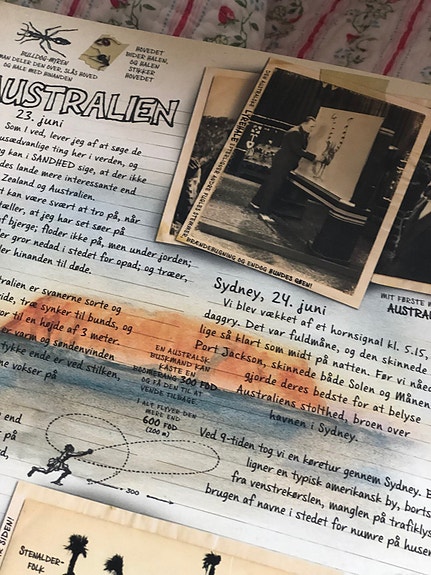 BULLDOG-MYREN
MAN DELER DEN OVER, SLÅS HOVED
OG HALE MED HINANDEN
HOVEDET
BIDER HALEN,
OG HALEN
STIKKER
HOVEDET
AUSTRALIEN
23. juni
Som I ved, lever jeg af at søge de
usædvanlige ting her i verden, og
g kan i SANDHED sige, at der ikke
des lande mere interessante end
Zealand og Australien.
t kan være svært at tro på, når
tæller, at jeg har set søer på
f bjerge; floder ikke på, men under jorden;
der gror nedad i stedet for opad; og træer,
ler hinanden til døde.
tralien er svanerne sorte og
vide, træ synker til bunds, og
or til en højde af 3 meter.
er varm og søndenvinden
tykke ende er ved stilken,
ne vokser på
BRÆNDERUGNING OG ENDOG BUNDES GØEN!
Sydney, 24. juni
Vi blev vækket af et hornsignal kl. 5.15,
daggry. Det var fuldmåne, og den skinnede
lige så klart som midt på natten. Før vi nåed
Port Jackson, skinnede både Solen og Månen
gjorde deres bedste for at belyse
Australiens stolthed, broen over
havnen i Sydney.
MIT FØRSTE
AUSTRA
EN AUSTRALSK
BUSKMAND KAN
KASTE EN
BOOMERANG 300 FOD
OG FÅ DEN TIL AT
VENDE TILBAGE.
I ALT FLYVER DEN
MERE END
600 FOD
(200 m)
300
Ved 9-tiden tog vi en køretur gennem Sydney. B
ligner en typisk amerikansk by, borts
fra venstrekørslen, manglen på trafiklys
brugen af navne i stedet for numre på huse
end
på
R SIDEN!
STENALDER-
FOLK